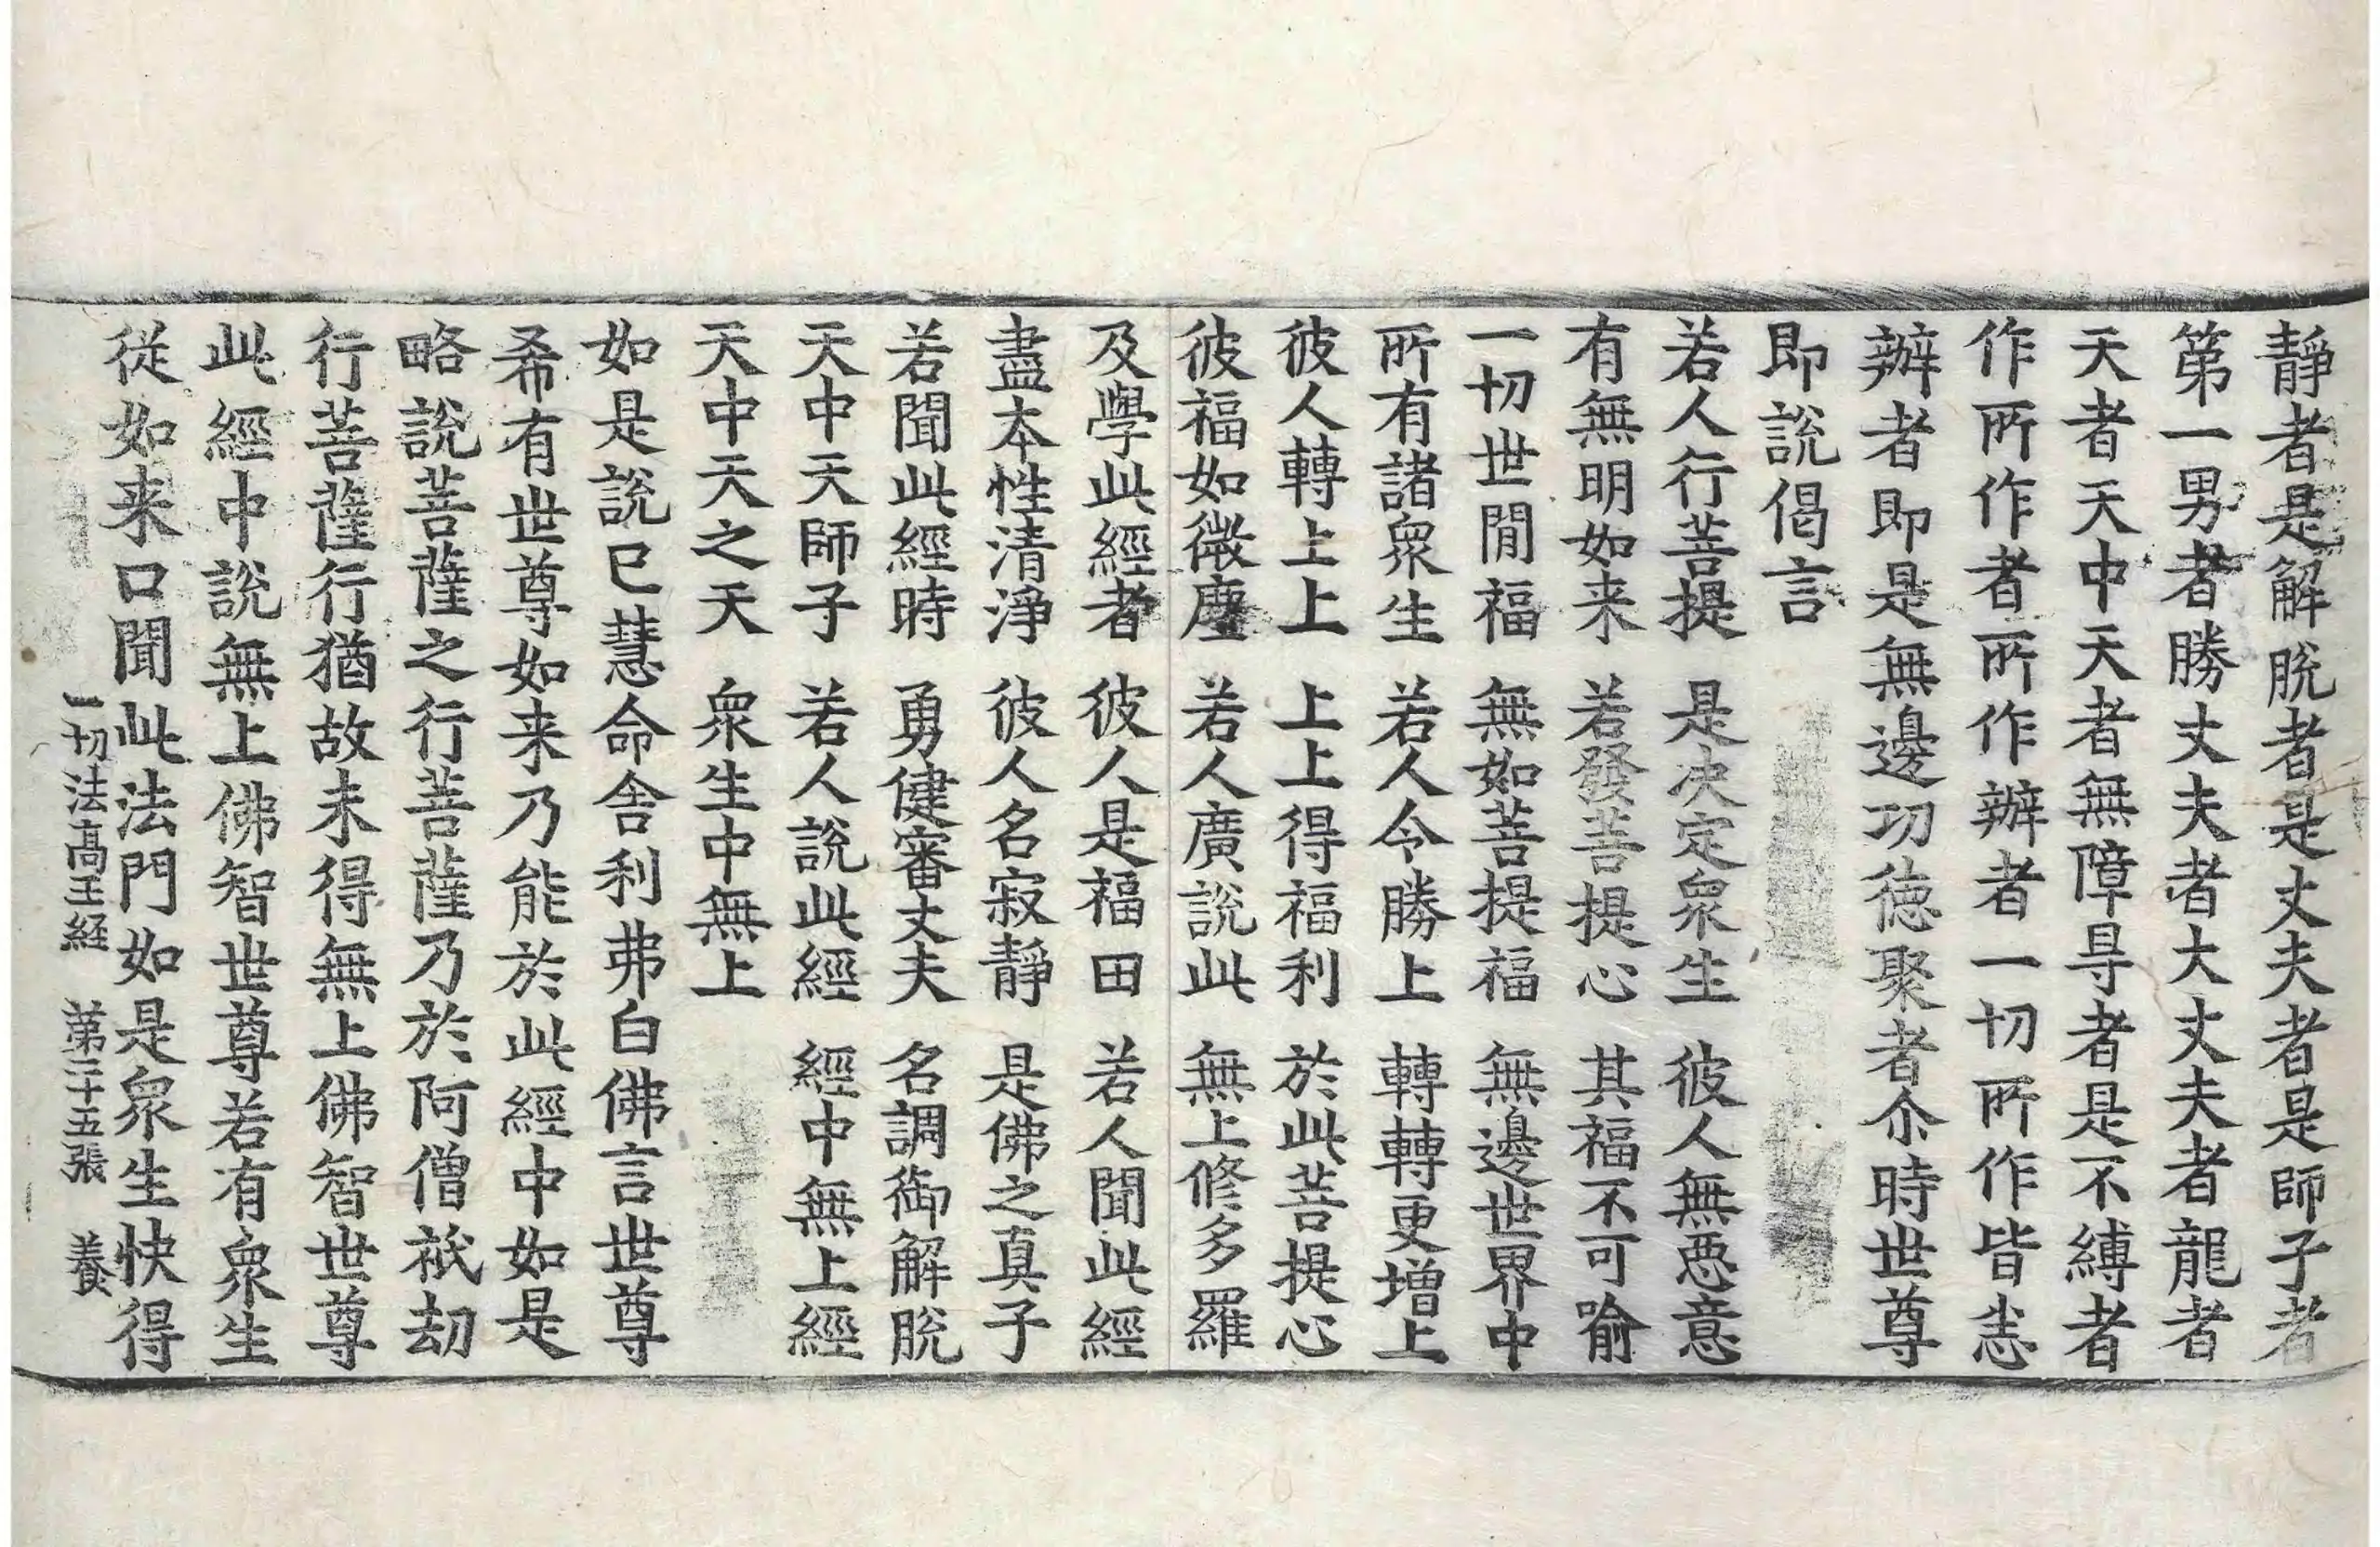 靜者是解脫者是丈夫者是師子者
第一男者勝丈夫者大丈夫者龍者
天者天中天者無障㝵者是不縛者
作所作者所作辦者一切所作皆悉
辦者即是無邊功德聚者尒時世尊
即說偈言
若人行菩提　是决定衆生　彼人無惡意
有無明如来　若發菩提心　其福不可喻
一切世間福　無如菩提福　無邊世界中
所有諸衆生　若人令勝上　轉轉更增上
彼人轉上上　上上得福利　於此菩提心
彼福如微塵　若人廣說此　無上修多羅
及學此經者　彼人是福田　若人聞此經
盡本性清淨　彼人名寂靜　是佛之真子
若聞此經時　勇健審丈夫　名調御解脫
天中天師子　若人說此經　經中無上經
天中天之天　衆生中無上
如是說已慧命舍利弗白佛言世尊
希有世尊如来乃能於此經中如是
略說菩薩之行菩薩乃於阿僧祇劫
行菩薩行猶故未得無上佛智世尊
此經中說無上佛智世尊若有衆生
從如来口聞此法門如是衆生快得
一切法高王経　第二十五張　養